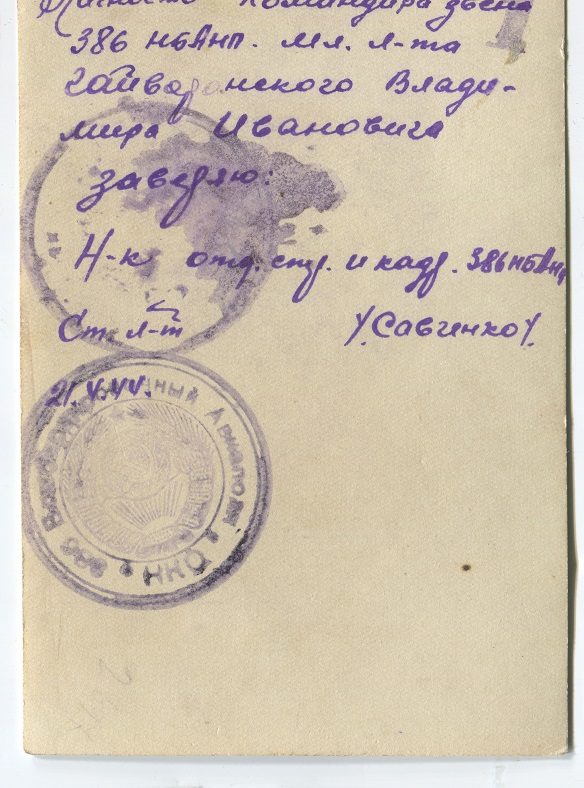 Личность командира звена
386 нбАнп. Мл. л-та
Гайворонского Влади-
мира Ивановича
заверяю:
Н-к отд. стр. и кадр. 386 нбАнп
Ст. л-т /Савченко/.
21.V.44.
386 Авиаполк НКО